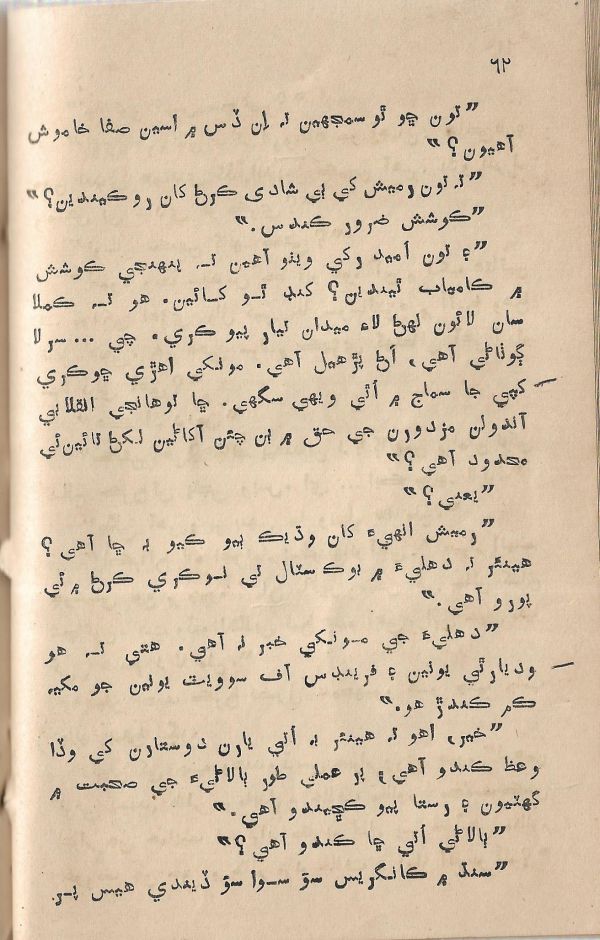 ٦٢
”تون ڇو ٿو سمجهين تہ اِن ڏس ۾ اسين صفا خاموش
آهيون؟“
”تہ تون رميش کي ٻي شادي ڪرڻ کان روڪيندين؟“
”ڪوشش ضرور ڪندس.“
”۽ تون اُميد رکي ويٺو آهين تہ پنهنجي ڪوشش
۾ ڪامياب ٿيندين؟ ڪنڌ ٿو کسائين. هو تہ ڪملا
سان لائون لهڻ لاءِ ميدان تيار پيو ڪري. چي ... سرلا
ڳوٺاڻي آهي، اڻ پڙهيل آهي. مونکي اهڙي ڇوڪري
کپي جا سماج ۾ اُٿي ويهي سگهي. ڇا توهانجي انقلابي
آندولن مزدورن جي حق ۾ ٻن چئن آکاڻين لکڻ تائين ئي
محدود آهي؟“
”يعني؟“
”رميش انهيءَ کان وڌيڪ ٻيو ڪيو بہ ڇا آهي؟
هينئر تہ دهليءَ ۾ بوڪ سٽال تي نوڪري ڪرڻ ۾ ئي
پورو آهي.“
”دهليءَ جي مونکي خبر نہ آهي. هتي تہ هو
وديارٿي يونين ۽ فرينڊس آف سوويٽ يونين جو مکيہ
ڪم ڪندڙ هو.“
”خير، اهو تہ هينئر بہ اُتي يارن دوستارن کي وڏا
وعظ ڪندو آهي، پر عملي طور ٻالاڻيءَ جي صحبت ۾
گهٽيون ۽ رستا پيو ڪڇيندو آهي.“
”ٻالاڻي اُتي ڇا ڪندو آهي؟“
”سنڌ ۾ ڪانگريس سؤ سوا سؤ ڏيندي هيس پر